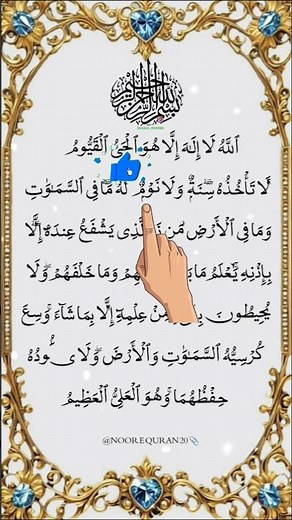 بسم الله الرحمن الرحيم
ٱللَّهُ لَآ إِلَٰهَ إِلَّا هُوَ ٱلْحَىُّ ٱلْقَيُّومُ
لَا تَأْخُذُهُۥ سِنَةٌ وَلَا نَوْمٌ لَّهُۥ مَا فِى ٱلسَّمَٰوَٰتِ
وَمَا فِى ٱلْأَرْضِ مَن يَشْفَعُ عِندَهُۥٓ إِلَّا
بِإِذْنِهِۦ يَعْلَمُ مَا وَمَا خَلْفَهُمْ وَلَا
يُحِيطُونَ مِّنْ عِلْمِهِۦٓ إِلَّا بِمَا شَآءَ وَسِعَ
كُرْسِيُّهُ ٱلسَّمَٰوَٰتِ وَٱلْأَرْضَ وَلَا يَـُٔودُهُۥ
حِفْظُهُمَا وَهُوَ ٱلْعَلِىُّ ٱلْعَظِيمُ
@NOOREQURAN20